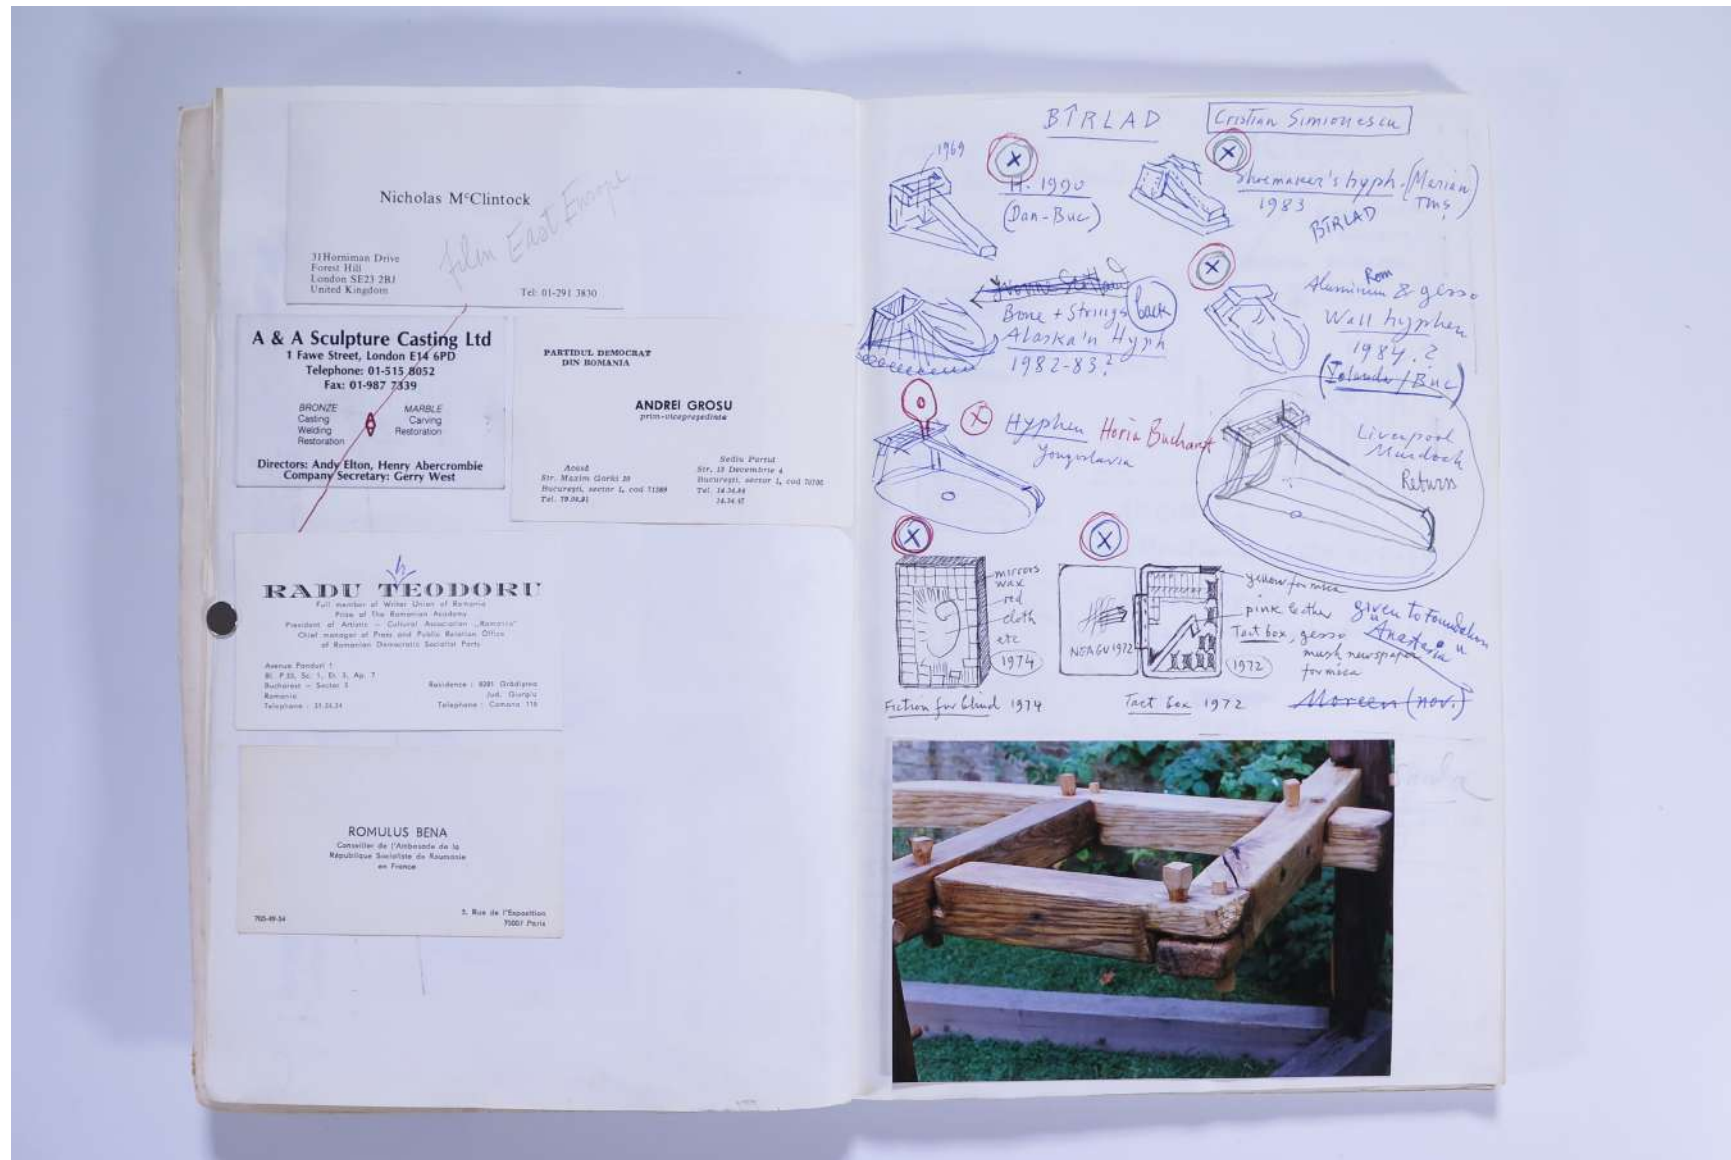 Nicholas McClintock
film East Europe
31 Horniman Drive
Forest Hill
London SE23 2BJ
United Kingdom
Tel: 01-291 3830
A & A Sculpture Casting Ltd
1 Fawe Street, London E14 6PD
Telephone: 01-515 8052
Fax: 01-987 7339
BRONZE
Casting
Welding
Restoration
MARBLE
Carving
Restoration
Directors: Andy Elton, Henry Abercrombie
Company Secretary: Gerry West
PARTIDUL DEMOCRAT
DIN ROMANIA
ANDREI GROSU
prim-vicepreşedinte
Acasă
Str. Maxim Gorki
Bucureşti, sector 1, cod
Tel.
Sediu Partid
Str. 13 Decembrie
Bucureşti, sector 1, cod
Tel.
RADU TEODORU
Full member of Writer Union of Romania
Prize of The Romanian Academy
President of Artistic – Cultural Association „Romania"
Chief manager of Press and Public Relation Office
of Romanian Democratic Socialist Party
Avenue Panduri 1
Bl. P.33, Sc. 1, Et. 3, Ap. 7
Bucharest – Sector 5
Romania
Telephone :
Residence : 8391 Grădiştea
Jud. Giurgiu
Telephone : Comana 118
ROMULUS BENA
Conseiller de l'Ambasade de la
République Socialiste de Roumanie
en France
5, Rue de l'Exposition
75007 Paris
BÎRLAD
Cristian Simionescu
1969
X
H. 1990
(Dan-Buc)
X
Shoemaker's hyph. (Marian)
1983
BÎRLAD
Bone + Strings
back
Alaska'n Hyph
1982-83?
X
Rom
Aluminium & gesso
Wall hyphen
1984.?
(Iolanda/Buc)
X
Hyphen Horia
Yougoslavia
Liverpool
Murdoch
Return
X
mirrors
wax
red
cloth
etc
1974
Fiction for blind 1974
X
NEAGU 1972
yellow formica
pink leather
Tact box, gesso
mush newspaper
formica
1972
Tact box 1972
given to Foundation
Anastasia
Moreen (nov.)